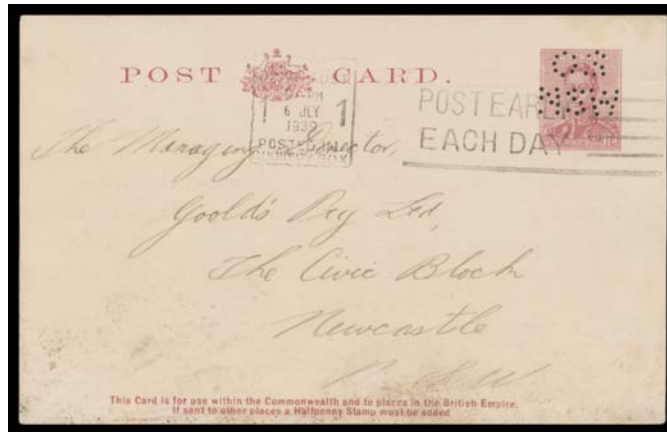 POST CARD.
PM
6 JLY
1939
POSTED IN
1 1
POST EARLY
EACH DAY
G S
NSW
The Managing Director,
Goold's Pty Ltd,
The Civic Block
Newcastle
N.S.W
This Card is for use within the Commonwealth and to places in the British Empire.
If sent to other places a Halfpenny Stamp must be added